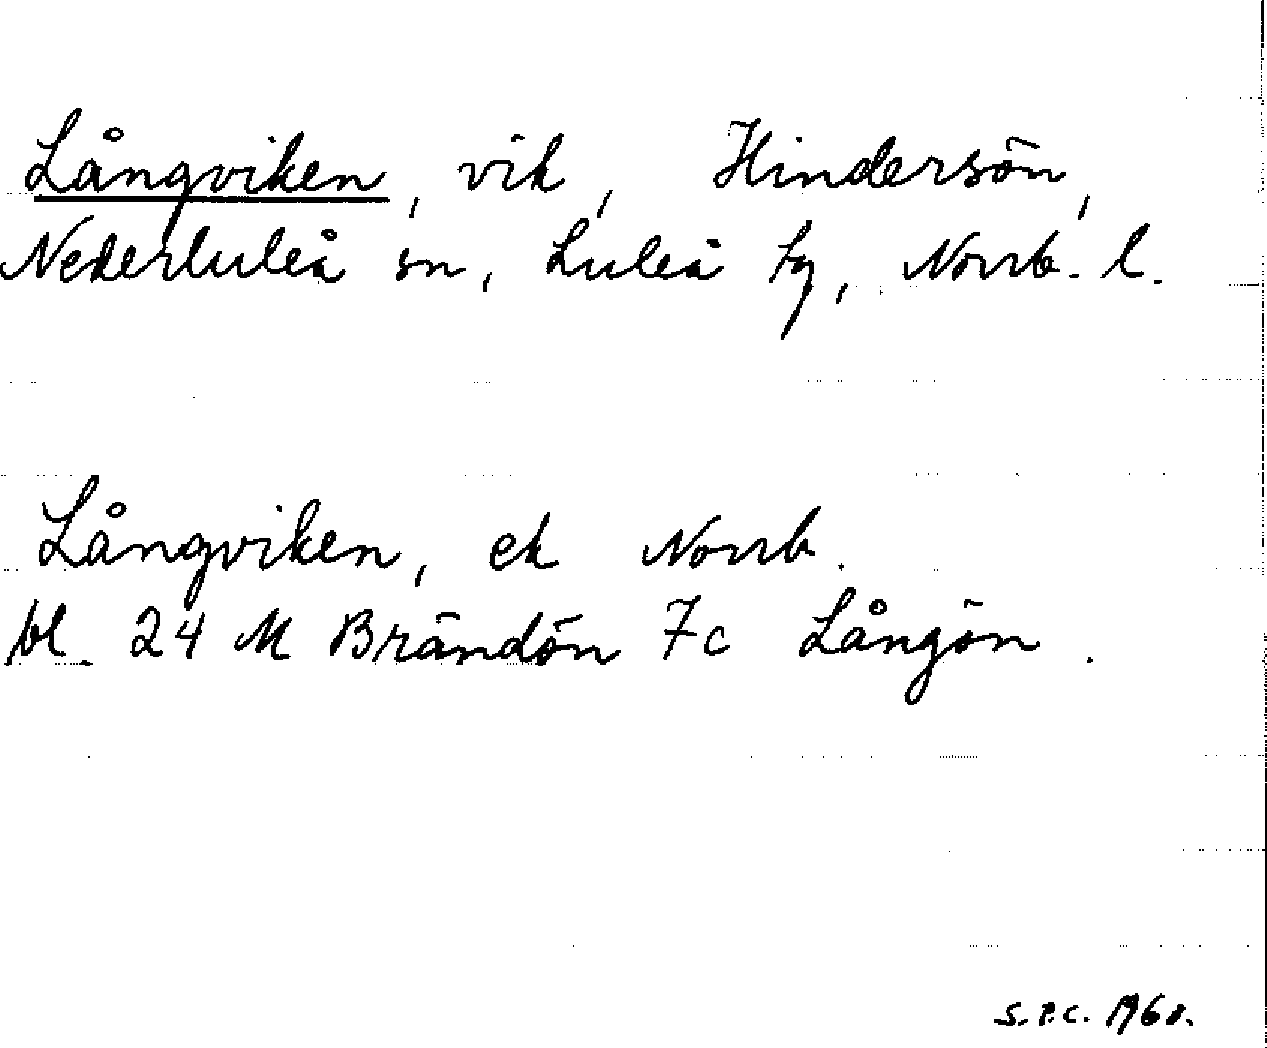 Långviken, vik, Hindersön,
Nederluleå sn, Luleå tg, Norrb. l.
Långviken, ek Norrb.
bl. 24 M Brändön 7c Långön.
S.P.C. 1960.